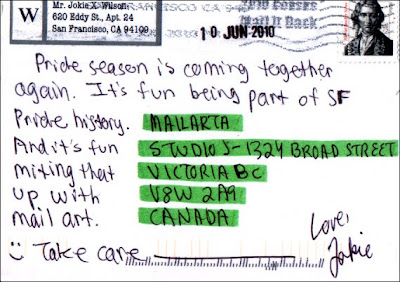 W
Mr. Jokie X. Wilson
620 Eddy St., Apt. 24
San Francisco, CA 94109
10 JUN 2010
Mail it Back
Pride season is coming together
again. It's fun being part of SF
Pride history. MAILARTA
And it's fun STUDIO 5-1324 BROAD STREET
miting that VICTORIA BC
up with V8W 2A9
mail art. CANADA
Love,
Take care Jokie